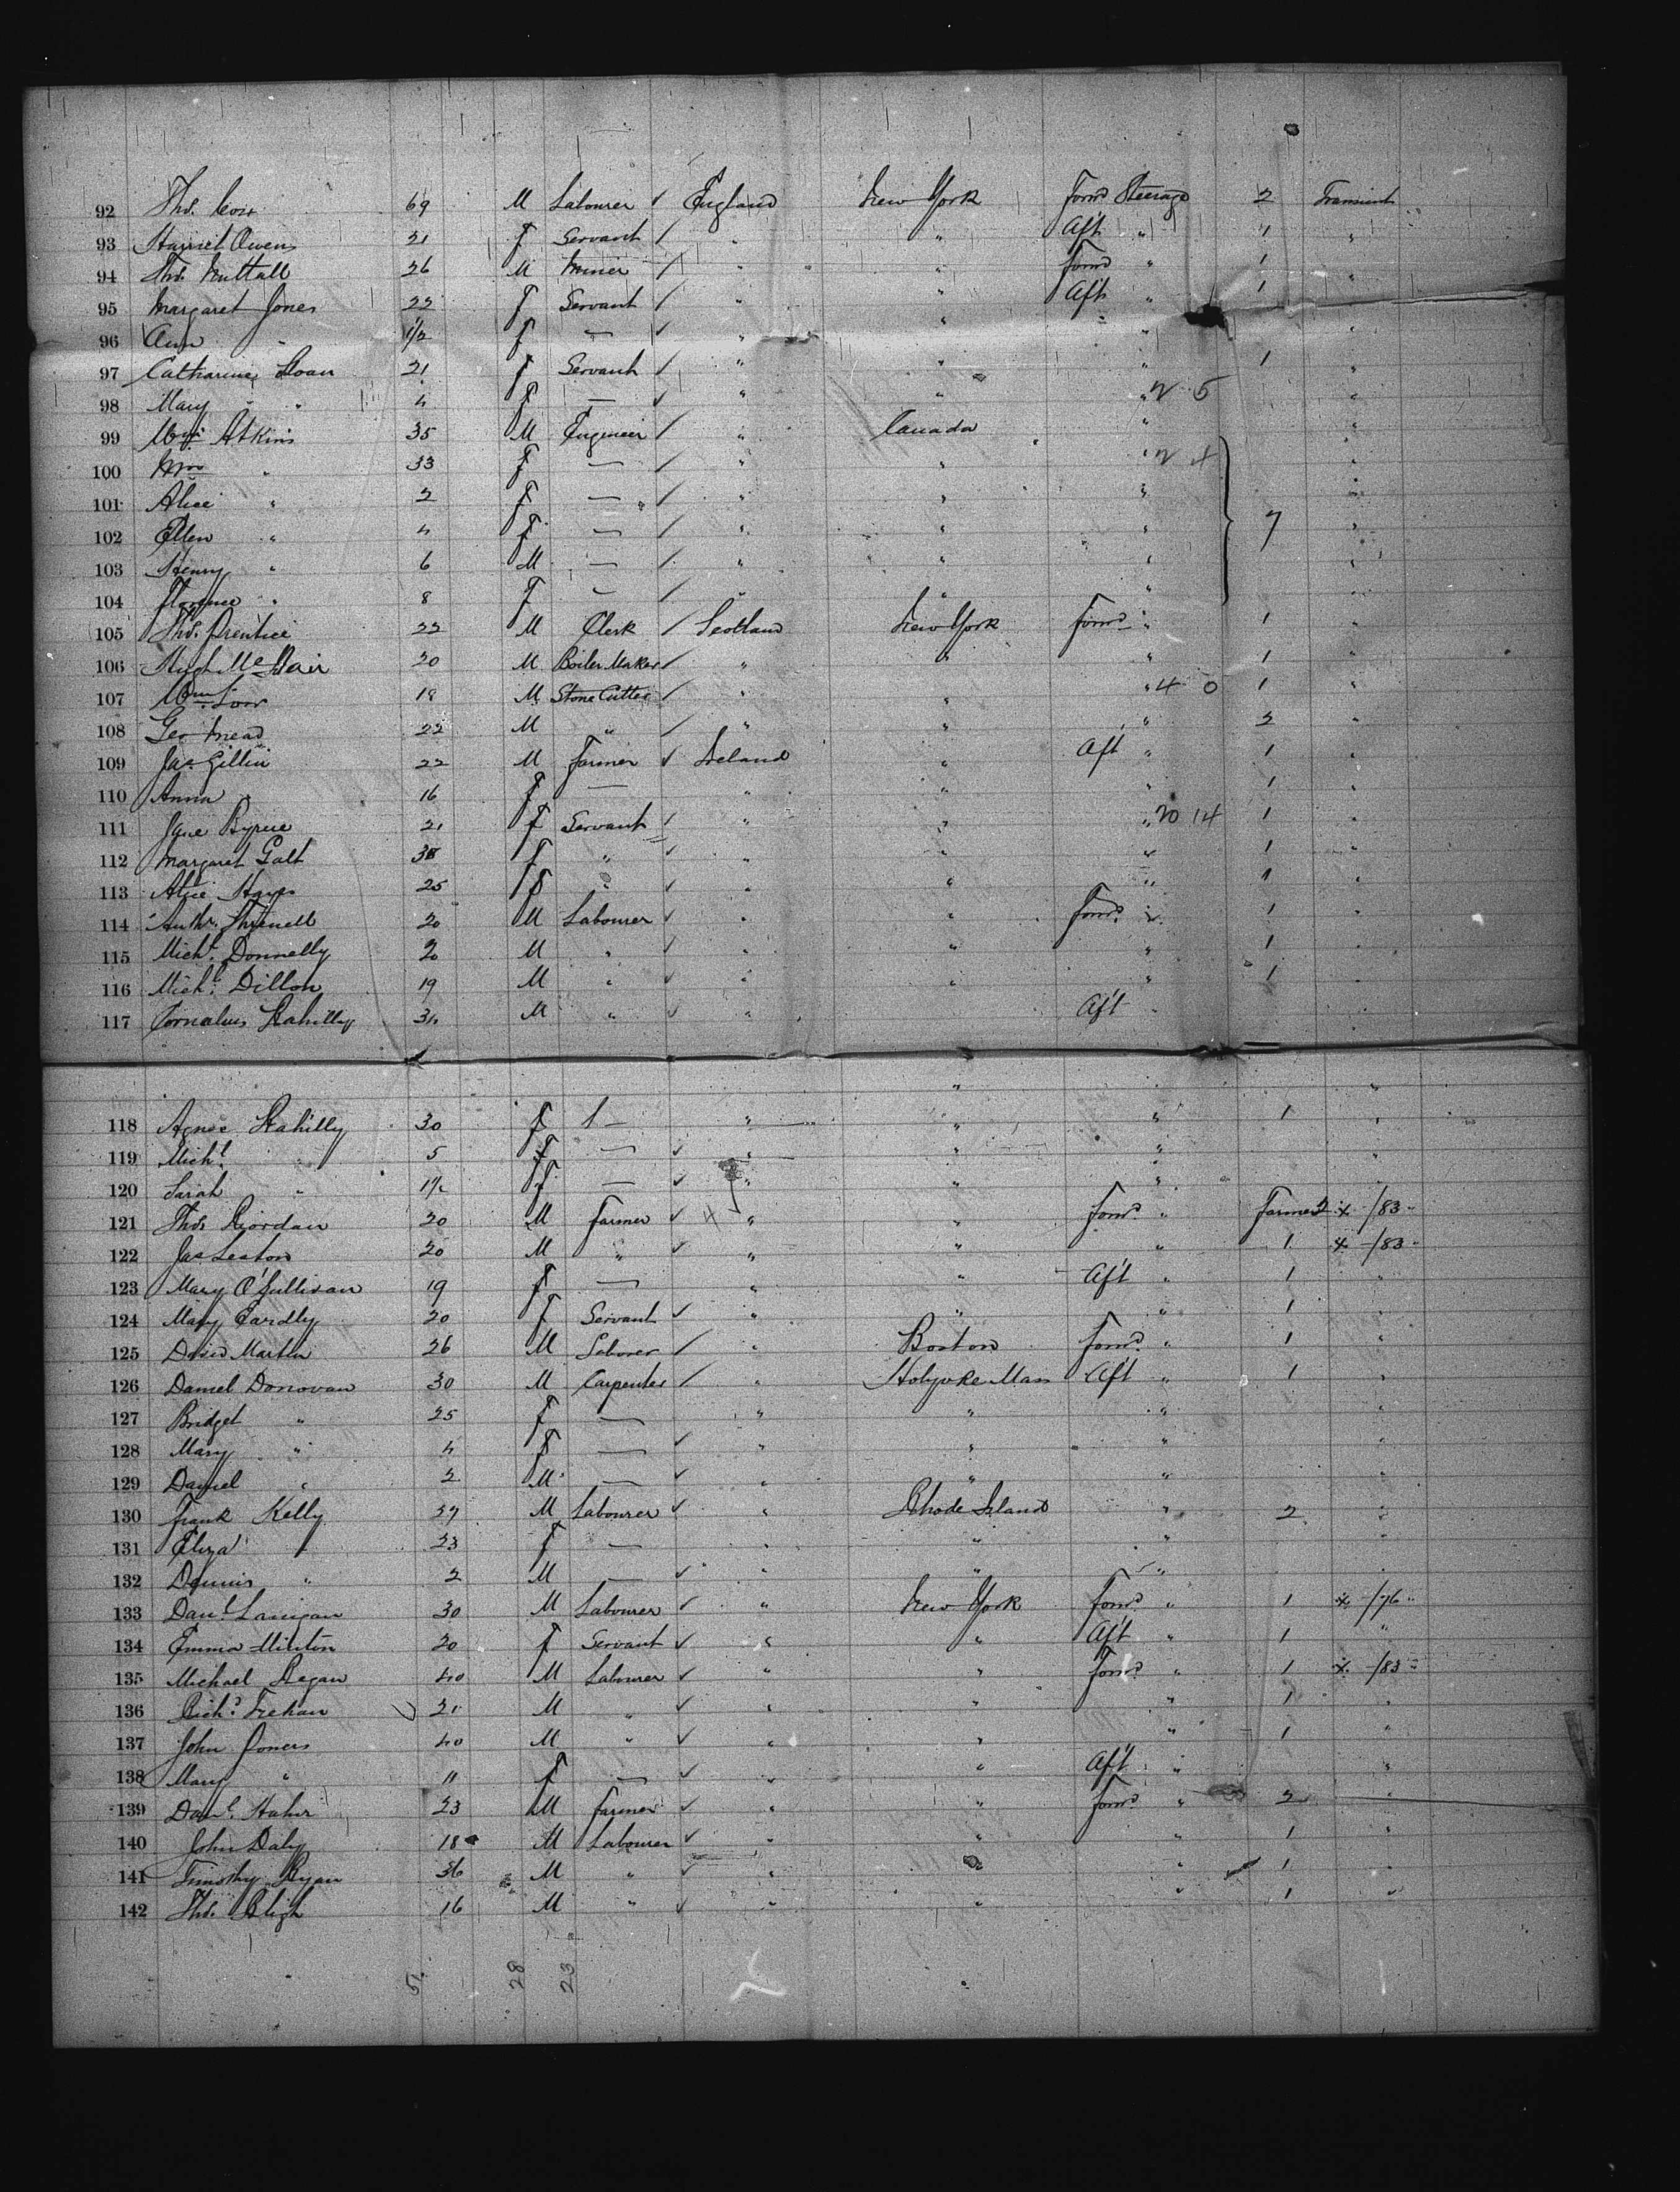 92 Thos. Cox 69 M Labourer ✓ England New York Forwd Steerage 2 Transient
93 Harriet Owens 21 F Servant / " " Aft " 1 "
94 Thos. Nuttall 26 M Miner / " " Forwd " 1 "
95 Margaret Jones 22 F Servant / " " Aft " 1 "
96 Ann " 1/2 F — ✓ " " " "
97 Catharine Sloan 21 F Servant / " " " 1 "
98 Mary " 4 F — ✓ " " " 2 5 "
99 Wm. Atkins 35 M Engineer / " Canada " "
100 Mrs " 33 F — / " " " 2 4 "
101 Alice " 2 F — / " " " "
102 Ellen " 4 F — / " " " 7 "
103 Henry " 6 M — / " " " "
104 Florence " 8 F — / " " " "
105 Thos. Prentice 22 M Clerk / Scotland New York Forwd " 1 "
106 Hugh McNair 20 M Boiler Maker / " " " 1 "
107 Wm. 18 M Stone Cutter / " " " 4 0 1 "
108 Geo Mead 22 M " / " " " 2 "
109 Jas Gillin 22 M Farmer ✓ Ireland " Aft " 1 "
110 Anna " 16 F — " " " 1 "
111 Jane Byrne 21 F Servant / " " " 20 14 1 "
112 Margaret Galt 38 F " ✓ " " " 1 "
113 Alice Hayes 25 F " ✓ " " " 1 "
114 20 M Labourer ✓ " " Forwd " 1 "
115 Michl. Donnelly 20 M " ✓ " " " 1 "
116 Michl. Dillon 19 M " ✓ " " " 1 "
117 Cornelius Stahilly 34 M " ✓ " Aft "
" " "
118 Agnes Stahilly 30 F 1 — " " " 1 "
119 Michl. " 5 F — ✓ " " " "
120 Sarah " 1 1/2 F — ✓ " " "
121 Thos. Riordan 20 M Farmer ✓ " " Forwd " Farmer 2 x /83 "
122 Jas Leaton 20 M " ✓ " " " 1 x /83 "
123 Mary O'Sullivan 19 F — " " Aft " 1 "
124 Mary 20 F Servant ✓ " " " 1 "
125 David Martin 26 M Laborer / " Boston Forwd " 1 "
126 Daniel Donovan 30 M Carpenter / " Holyoke Mass Aft " 1 "
127 Bridget " 25 F — " " " "
128 Mary " 4 F — ✓ " " " "
129 Daniel " 2 M — ✓ " " " "
130 Frank Kelly 27 M Labourer ✓ " Rhode Island " 2 "
131 Eliza " 23 F — " " " "
132 Dennis " 2 M — ✓ " " " "
133 Danl. Lanigan 30 M Labourer ✓ " New York Forwd " 1 x /76 "
134 Emma Minton 20 F Servant ✓ " " Aft " 1 "
135 Michael Regan 40 M Labourer ✓ " " Forwd " 1 x /83 "
136 Richd. Trehan 21 M " ✓ " " " 1 "
137 John Powers 40 M " ✓ " " " 1 "
138 Mary " 11 F — ✓ " " Aft " "
139 Danl. Maher 23 M Farmer ✓ " " Forwd " 2 "
140 John Daly 18 M Labourer ✓ " " " 1 "
141 Timothy Ryan 36 M " ✓ " " " 1 "
142 Thos. Bligh 16 M " ✓ " " " 1 "
51 28 23